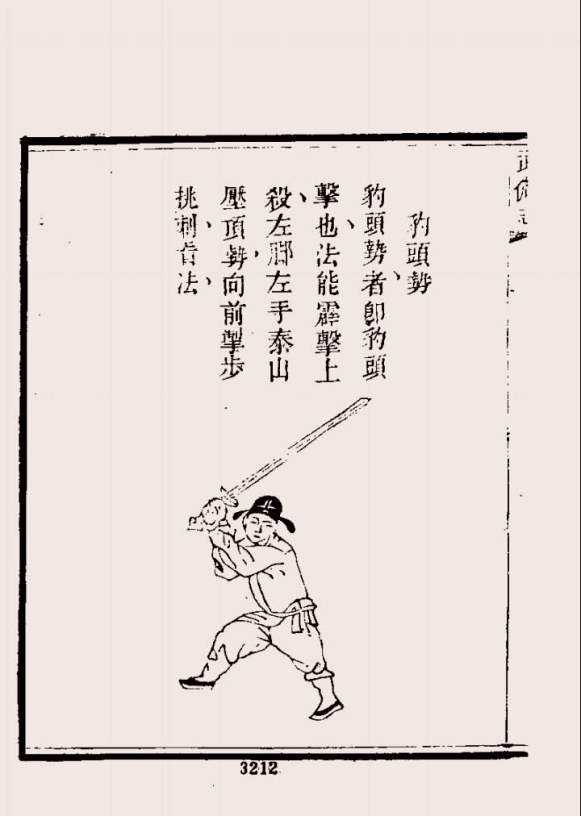 武備志
豹頭勢
豹頭勢者即豹頭
擊也法能霹擊上
殺左脚左手泰山
壓頂勢向前掣步
挑刺法
3212